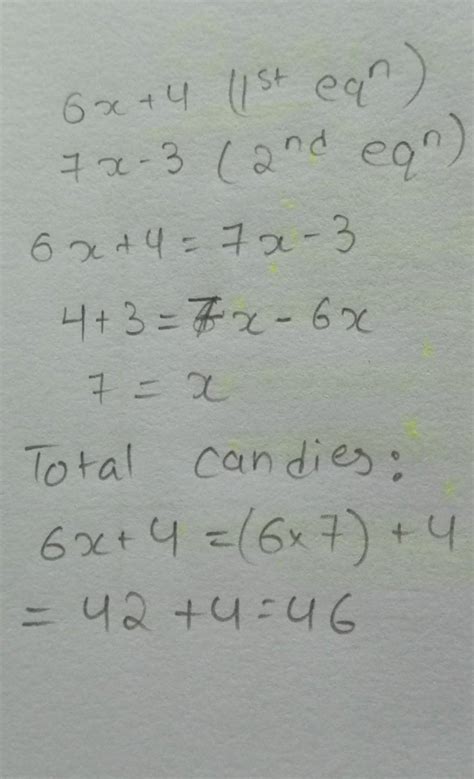 6x+4 (1st eqn)
7x-3 (2nd eqn)
6x+4=7x-3
4+3=7x-6x
7=x
Total candies:
6x+4=(6x7)+4
=42+4=46